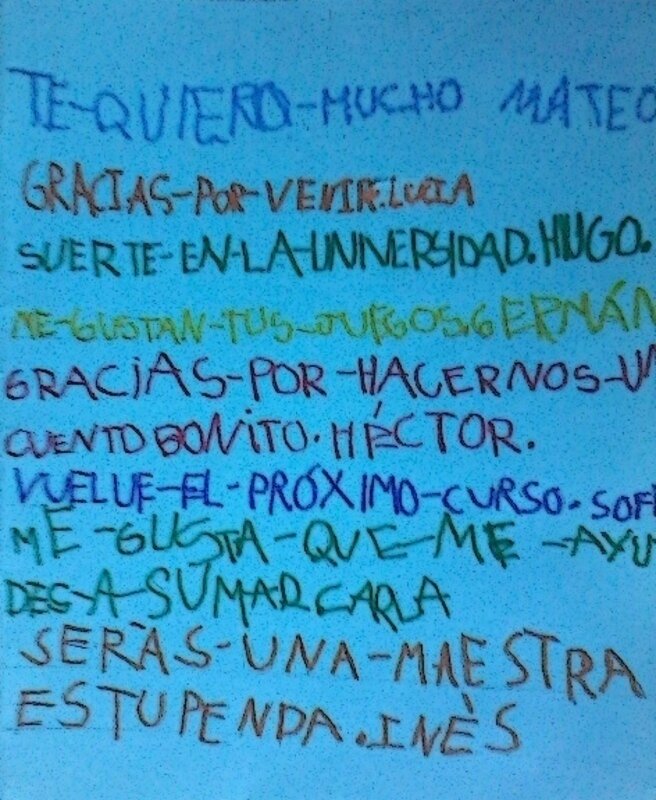 TE-QUIERO-MUCHO MATEO
GRACIAS-POR-VENIR.LUCIA
SUERTE-EN-LA-UNIVERSIDAD.HUGO.
ME-GUSTAN-TUS-JUEGOS.GERMÁN
GRACIAS-POR-HACERNOS-UN
CUENTO BONITO.HÉCTOR.
VUELVE-EL-PRÓXIMO-CURSO.SOFI
ME-GUSTA-QUE-ME-AYU
DES-A-SUMAR CARLA
SERÀS-UNA-MAESTRA
ESTUPENDA.INÈS